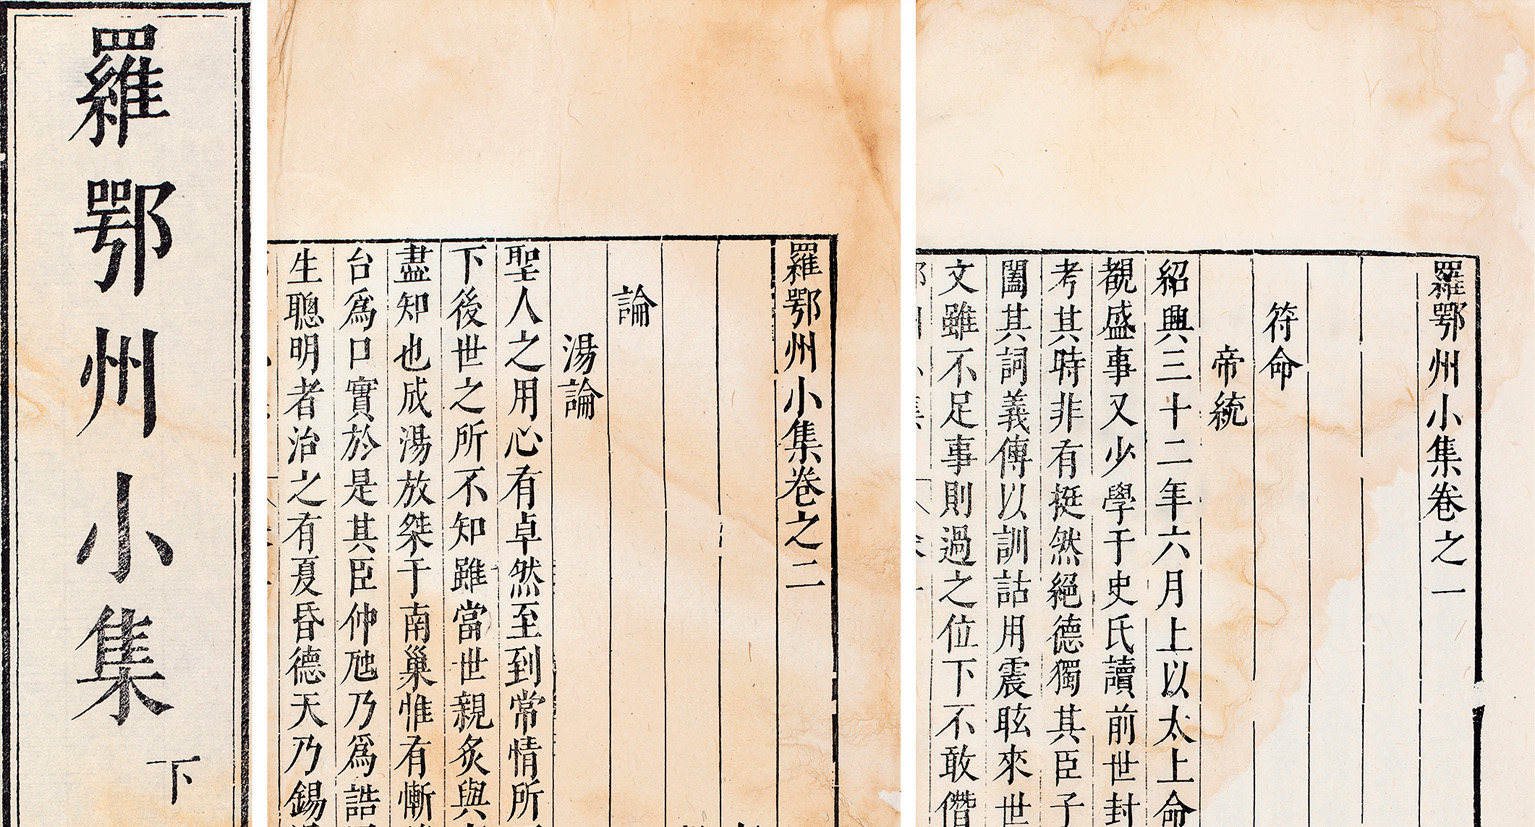 羅鄂州小集卷之一
符命
帝統
紹興三十二年六月上以太上命
覩盛事又少學于史氏讀前世封
考其時非有挺然絕德獨其臣子
闔其詞義傳以訓詁用震眩來世
文雖不足事則過之位下不敢僭
羅鄂州小集卷之二
論
湯論
聖人之用心有卓然至到常情所
下後世之所不知雖當世親炙與
盡知也成湯放桀于南巢惟有慚
台爲口實於是其臣仲虺乃爲誥
生聰明者治之有夏昏德天乃錫
羅鄂州小集
下